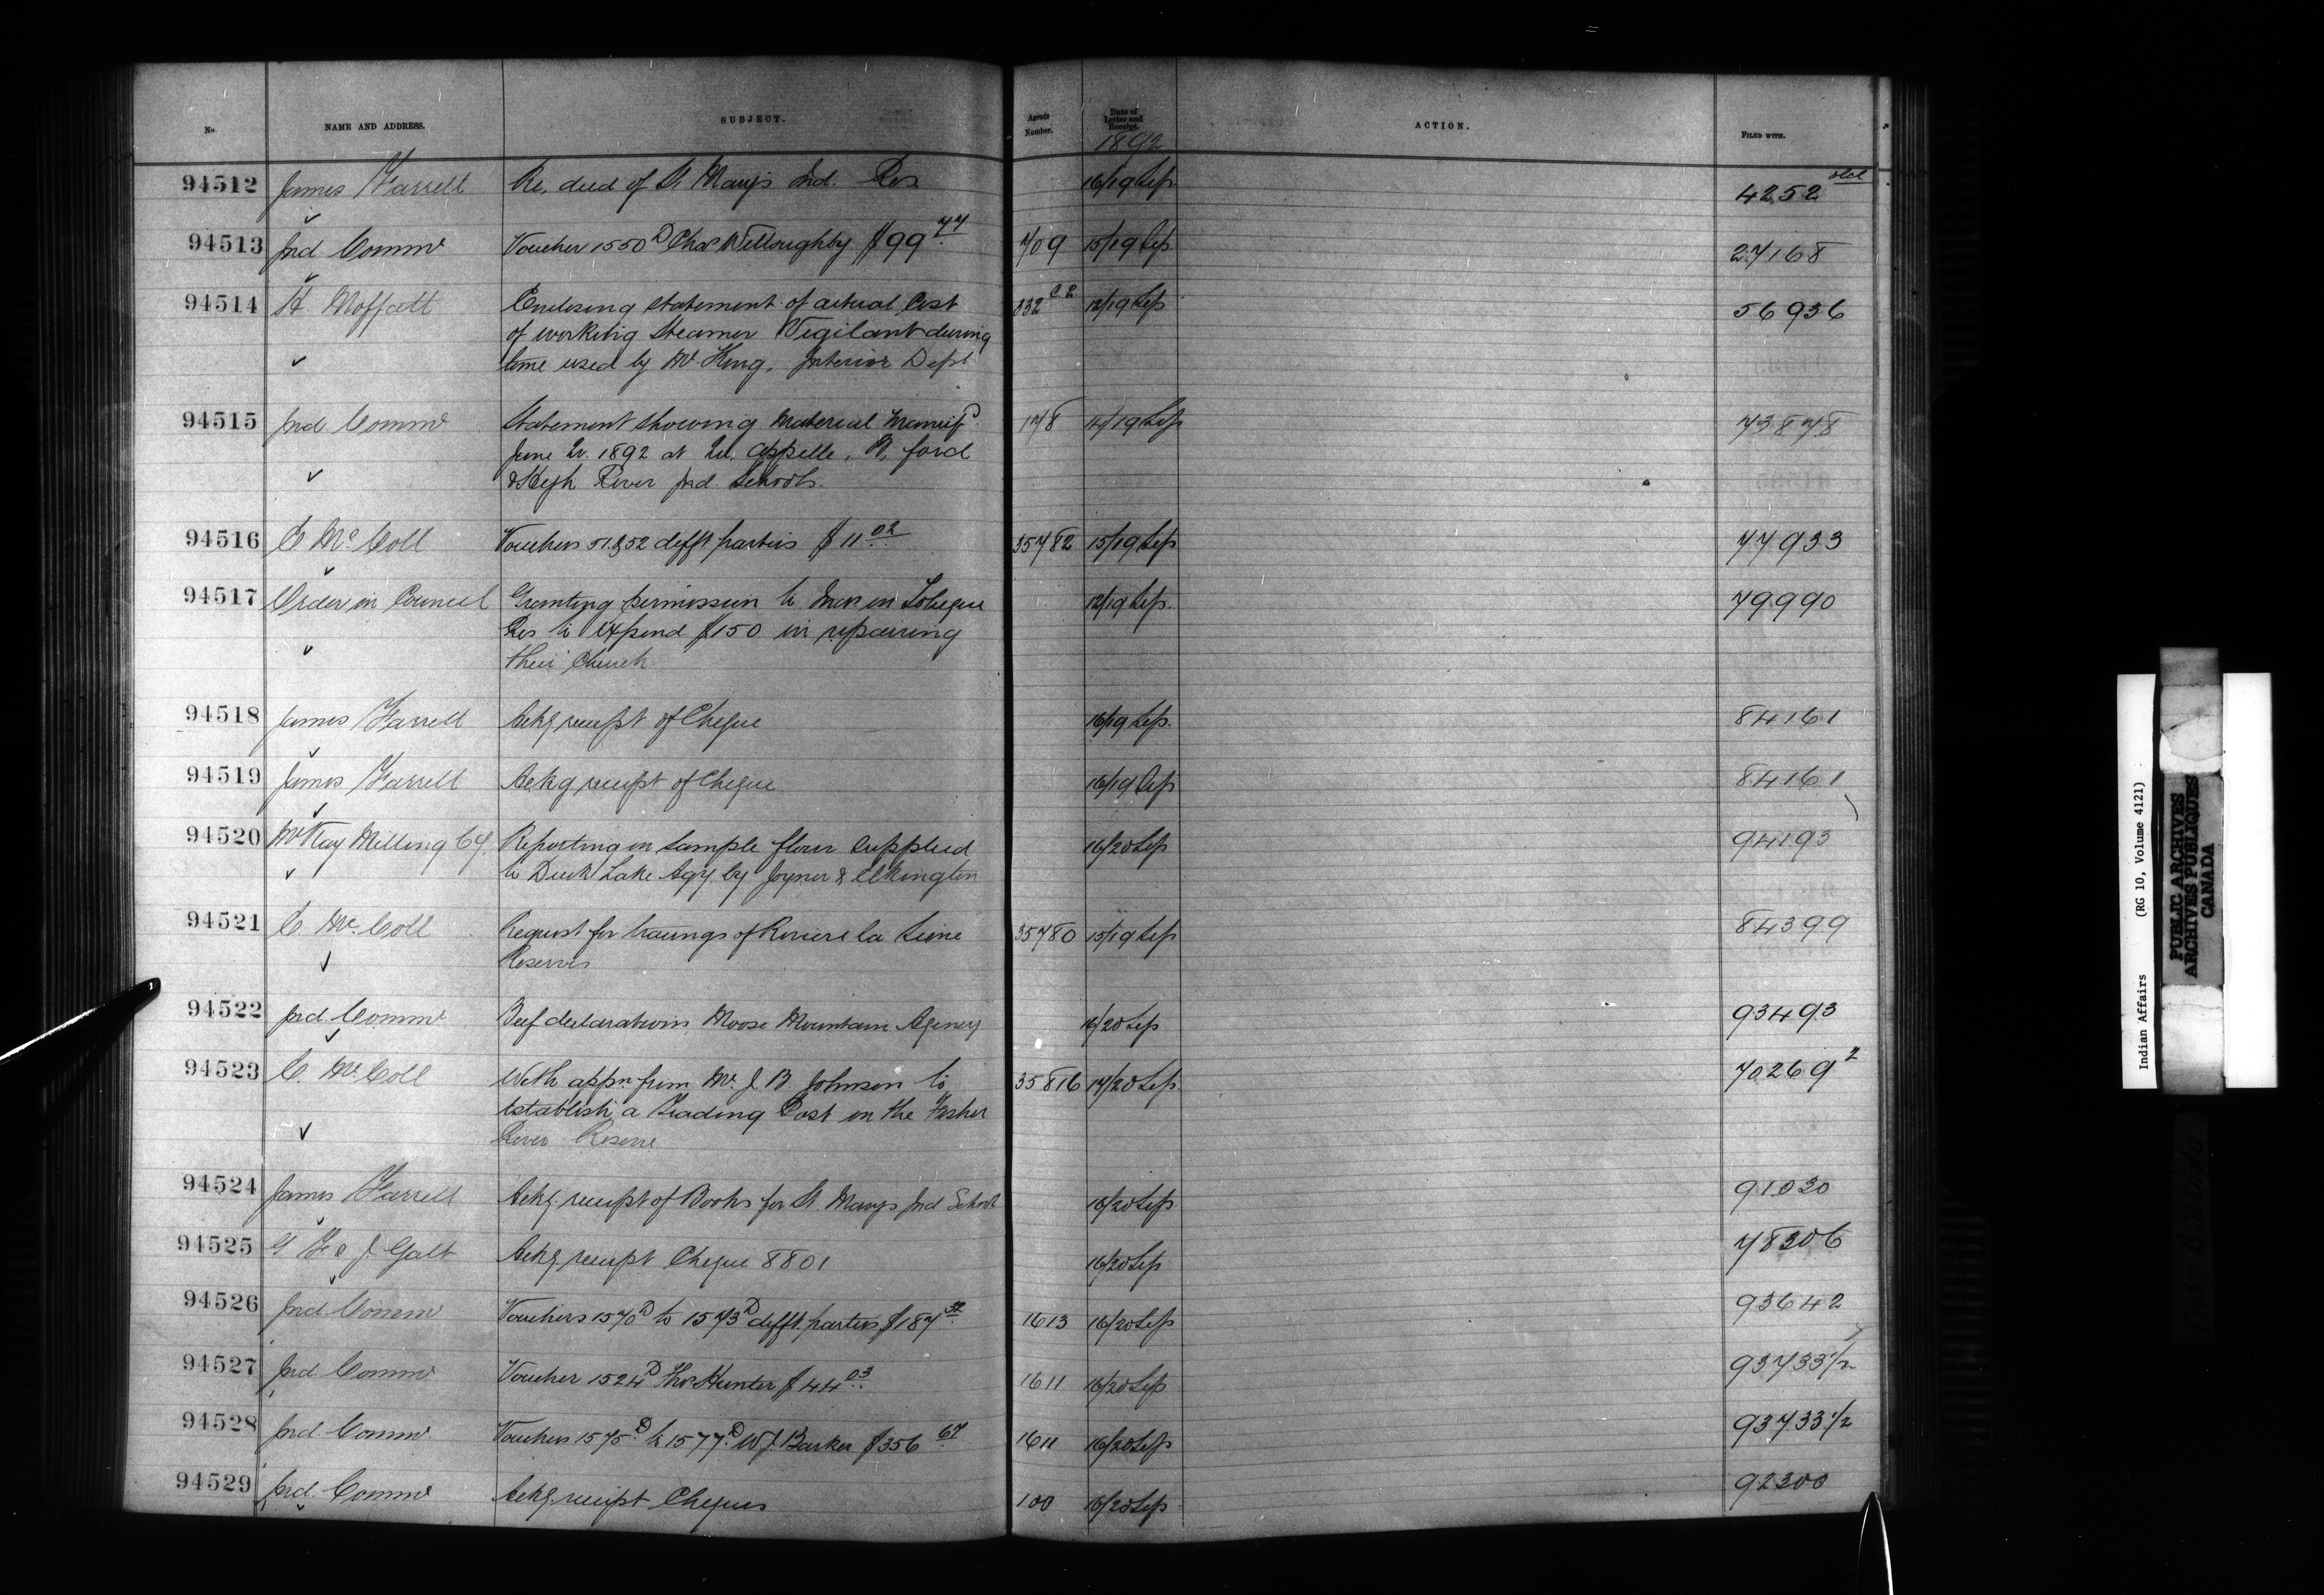 No. NAME AND ADDRESS. SUBJECT. Agents Number. Date of Letter and Receipt. ACTION. FILED WITH.
1892
94512 James Farrell Re, deed of St Mary's Ind. Res 16/19 Sep 4252 old
94513 Ind. Commr Voucher 1550 D Chas Willoughby $99 77 709 15/19 Sep 27168
94514 H. Moffatt Enclosing statement of actual Cost 832 C.R. 12/19 Sep 56936
of working Steamer Vigilant during
time used by Mr King, Interior Dept
94515 Ind. Commr Statement showing Material Manufd 178 14/19 Sep 73878
June Qr. 1892 at Qu, Appelle, B, ford
& High River Ind. Schools.
94516 E McColl Vouchers 51 & 52 difft parties $11 02 35782 15/19 Sep 77933
94517 Order in Council Granting permission to Inds on Lobique 12/19 Sep. 79990
Res to expend $150 in repairing
their Church
94518 James Farrell Ackg receipt of Cheque 16/19 Sep. 84161
94519 James Farrell Ackg receipt of Cheque 16/19 Sep 84161
94520 McKay Milling Coy. Reporting on sample flour supplied 16/20 Sep 94193
to Duck Lake Agy. by Joyner & Elkington
94521 E. McColl Request for tracings of Riviere la Seine 35780 15/19 Sep 84399
Reserves
94522 Ind. Commr Beef declarations Moose Mountain Agency 16/20 Sep 93493
94523 E. McColl With appn. from Mr. J. B. Johnson to 35816 17/20 Sep. 70269 2
establish a Trading Post on the Fisher
River Reserve
94524 James Farrell Ackg. receipt of Books for St. Marys Ind School 16/20 Sep 91030
94525 G F & J. Galt Ackg. receipt Cheque 8801 16/20 Sep 78306
94526 Ind Commr Vouchers 1570 D to 1573 D difft. parties $187 1613 16/20 Sep 93642
94527 Ind Commr Voucher 1524 D Thos Hunter $44 03 1611 16/20 Sep 93733 1/2
94528 Ind. Commr. Vouchers 1575 D to 1577 D W J. Barker $356 67 1611 16/20 Sep 93733 1/2
94529 Ind. Commr Ackg. receipt Cheques 100 16/20 Sep 92300
Indian Affairs (RG 10, Volume 4121)
PUBLIC ARCHIVES
ARCHIVES PUBLIQUES
CANADA